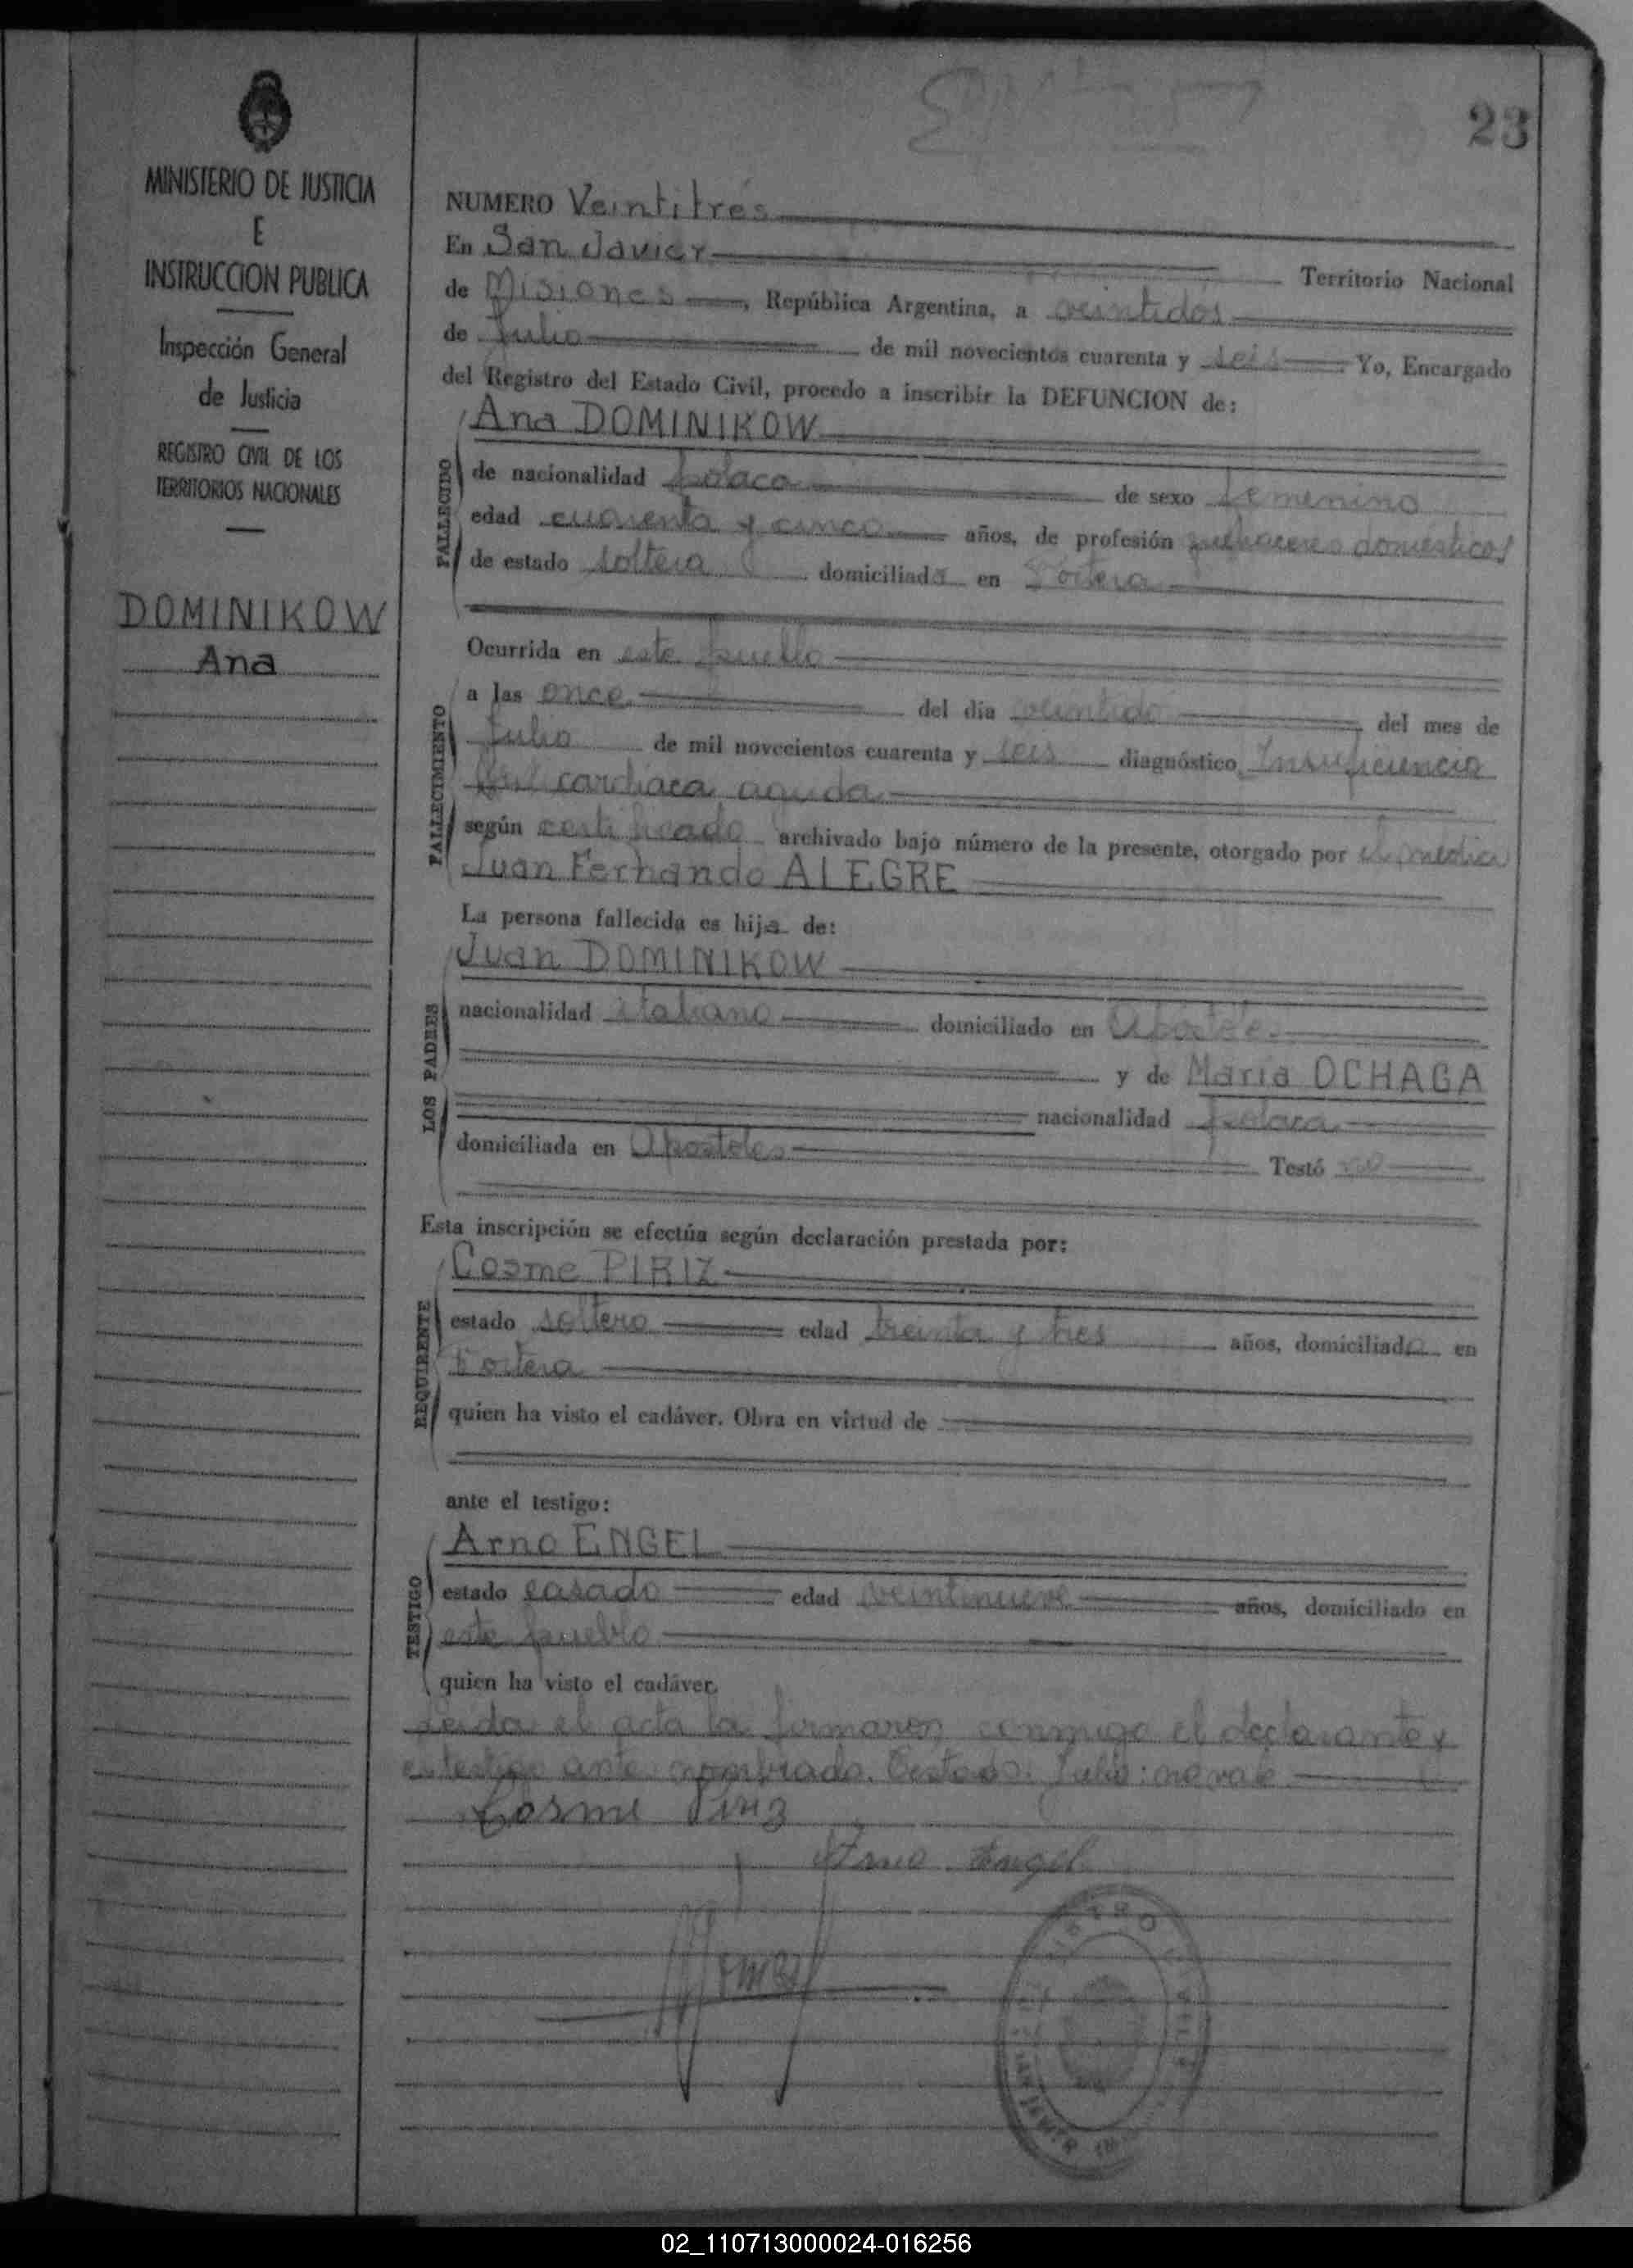 23
MINISTERIO DE JUSTICIA
E
INSTRUCCION PUBLICA
Inspección General
de Justicia
REGISTRO CIVIL DE LOS
TERRITORIOS NACIONALES
DOMINIKOW
Ana
NUMERO Veintitrés
En San Javier Territorio Nacional
de Misiones, República Argentina, a veintidos
de Julio de mil novecientos cuarenta y seis Yo, Encargado
del Registro del Estado Civil, procedo a inscribir la DEFUNCION de:
Ana DOMINIKOW
FALLECIDO
de nacionalidad polaca de sexo femenino
edad cuarenta y cinco años, de profesión quehaceres domésticos
de estado soltera domiciliada en
Ocurrida en este pueblo
FALLECIMIENTO
a las once del día veintido del mes de
Julio de mil novecientos cuarenta y seis diagnóstico Insuficiencia
cardiaca aguda
según certificado archivado bajo número de la presente, otorgado por el médico
Juan Fernando ALEGRE
La persona fallecida es hija de:
LOS PADRES
Juan DOMINIKOW
nacionalidad italiano domiciliado en
y de Maria OCHAGA
nacionalidad polaca
domiciliada en Apostoles Testó no
Esta inscripción se efectúa según declaración prestada por:
REQUIRENTE
Cosme PIRIZ
estado soltero edad treinta y tres años, domiciliado en
quien ha visto el cadáver. Obra en virtud de
ante el testigo:
TESTIGO
Arno ENGEL
estado casado edad veintinueve años, domiciliado en
este pueblo
quien ha visto el cadáver.
Leida el acta la firmaron conmigo el declarante y
testigo ante nombrado. Testado: Julio: no vale
Cosme Piriz
Arno Engel
02_110713000024-016256